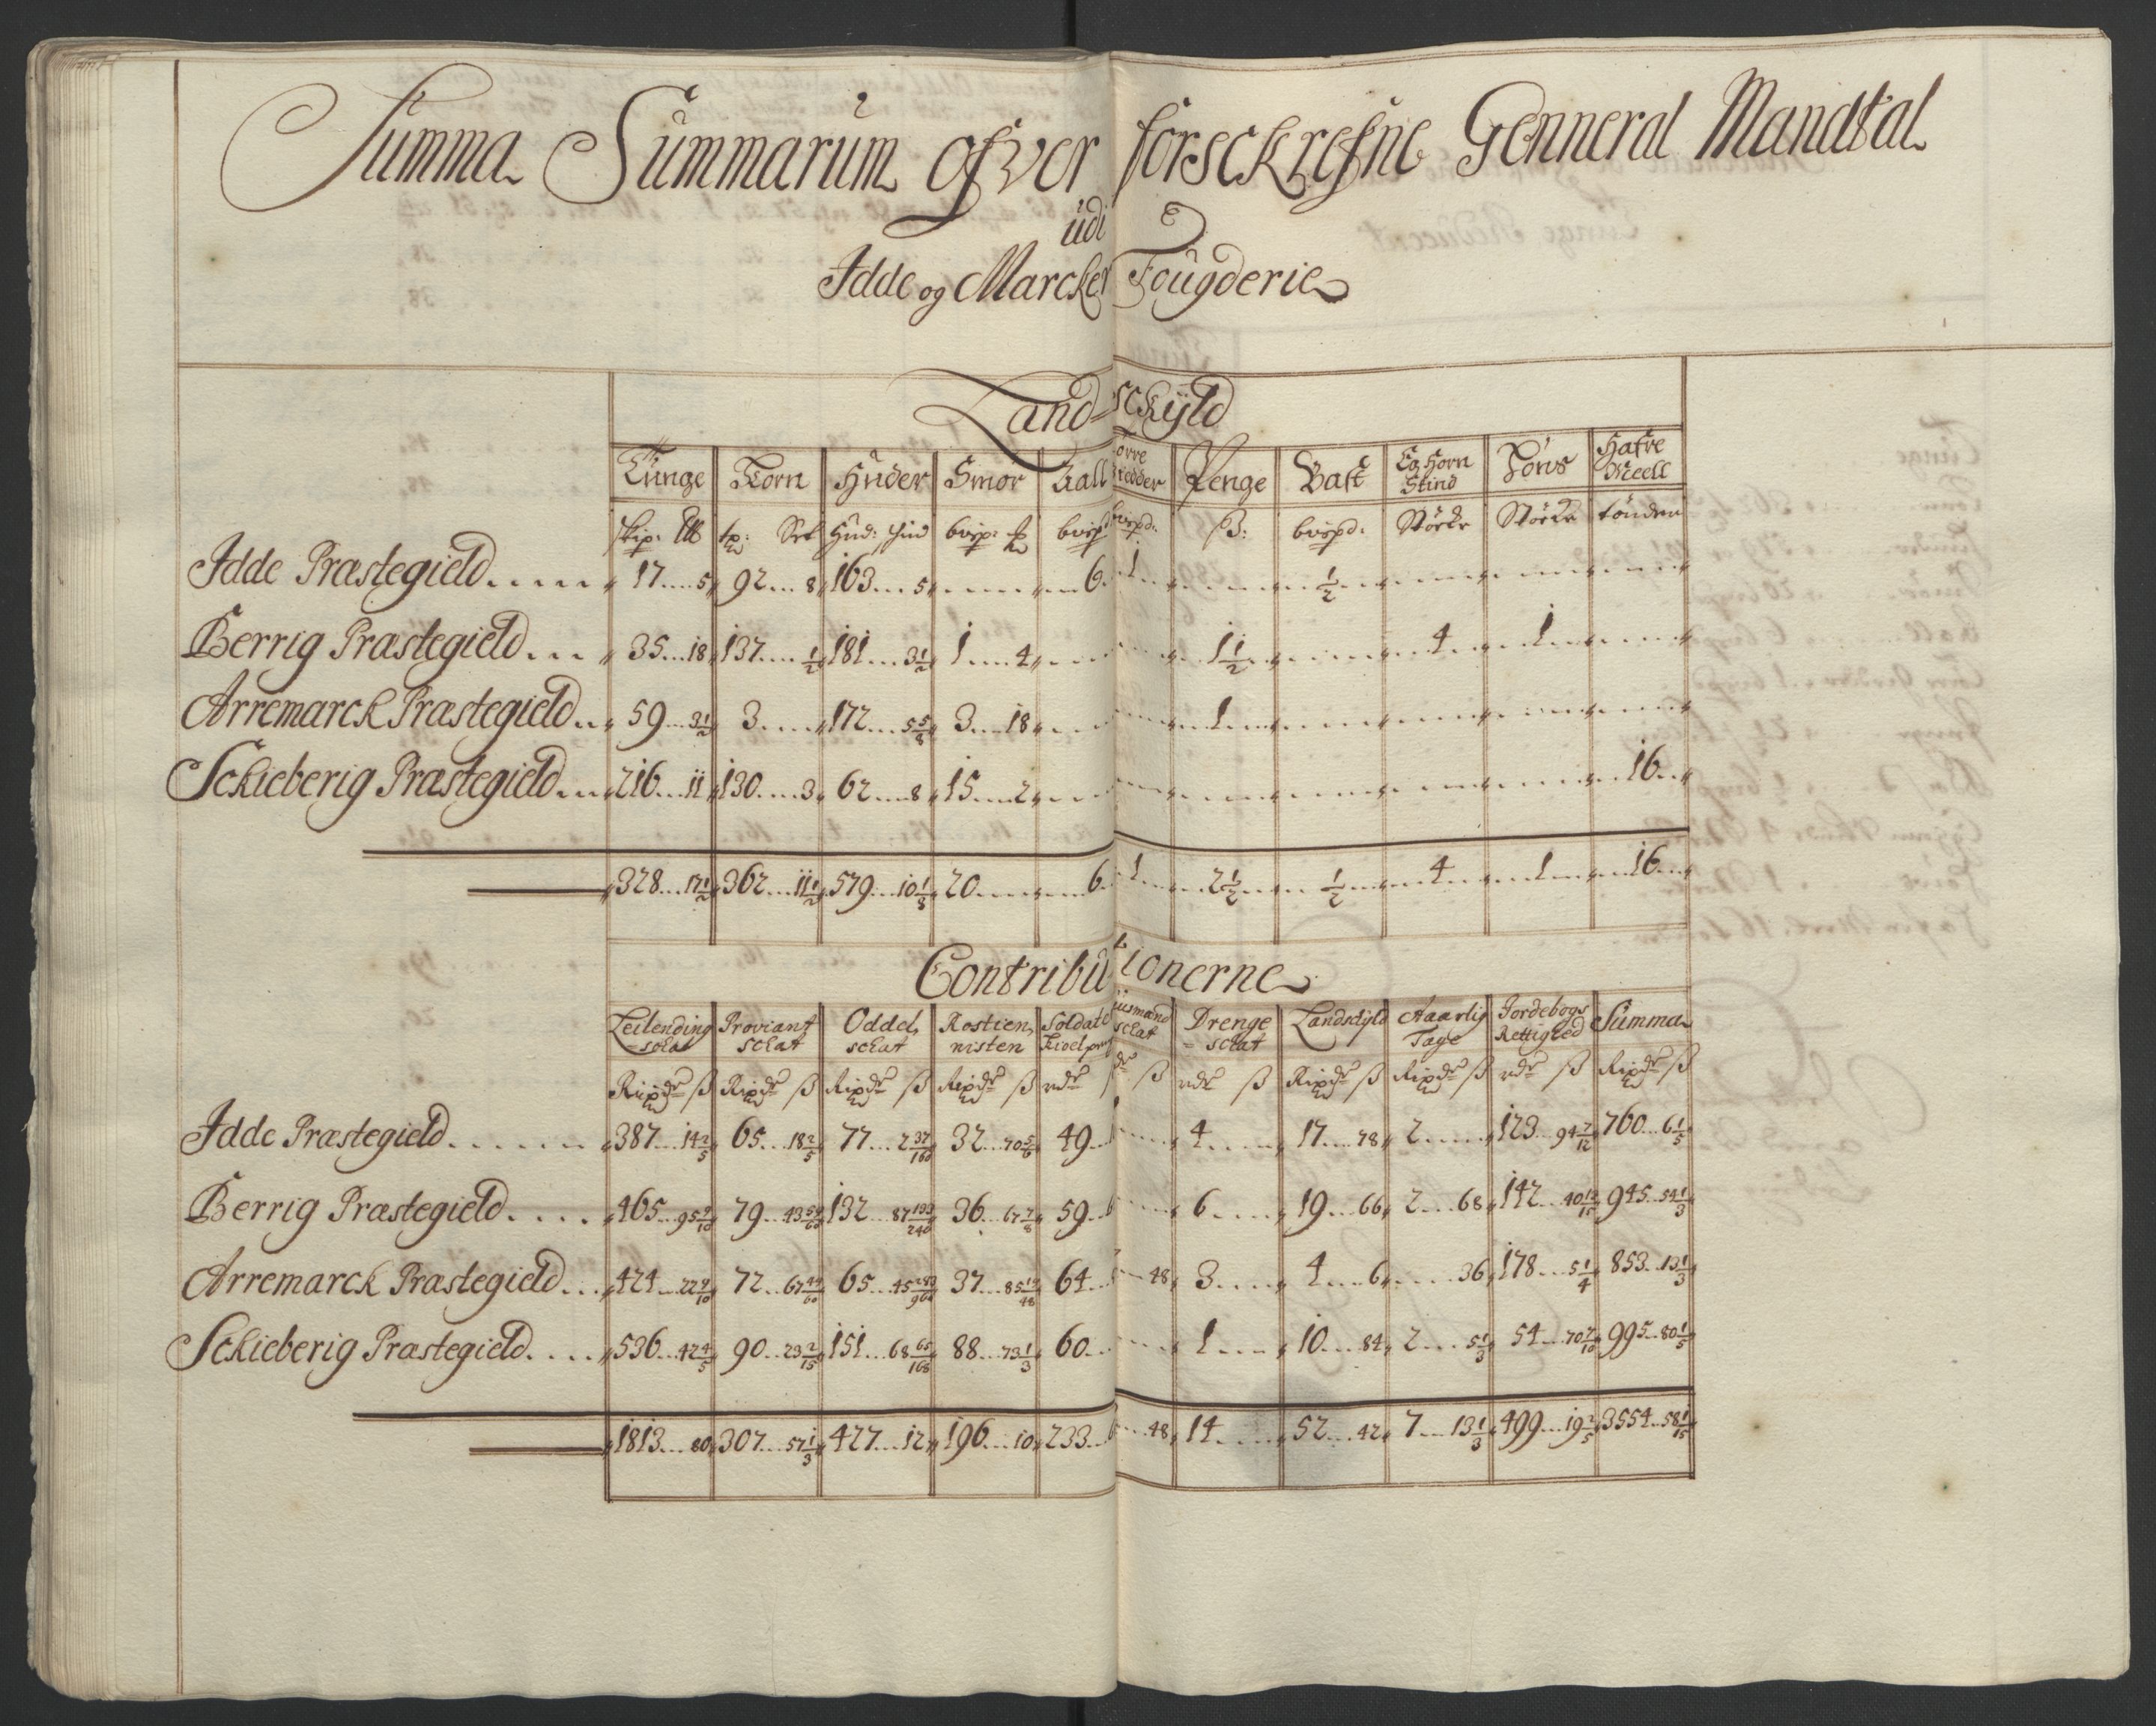 Summa Summarum ofver forsckrefne Genneral Mandtal
udi
Idde og Marcker Fougderie
Land-sckÿld
Tunge Korn Huder Smör Kall Törre Giedder Penge Bast Eg Horn Stind Föns Hafre Meell
skip: Hud: bvsp: bvspd: ß: bvspd: Störke Störke tönder
Idde Præstegield 17 5 92 8 163 5 6 1 1/2
Berrig Præstegield 35 18 137 1/2 181 3 1/2 1 4 1 1/2 4 1
Arremarck Præstegield 59 3 1/2 3 172 5 5/8 3 18 1
Sckieberig Præstegield 216 11 130 3 62 8 15 2 16
328 17 1/2 362 11 1/2 579 10 1/8 20 6 1 2 1/2 1/2 4 1 16
Contributionerne
Leilending sckat Proviant sckat Oddel sckat Rostien nisten Soldate Kioel Huusmand sckat Drenge sckat Landsckÿld Aaarlig Tage Jordebogs Rettighed Summa
Rixdr ß Rixdr ß Rixdr ß Rixdr ß rdr ß rdr ß Rixdr ß Rixdr ß rdr ß Rixdr ß
Idde Præstegield 387 14 2/5 65 18 2/5 77 2 37/160 32 70 5/6 49 4 17 78 2 123 94 7/12 760 6 1/5
Berrig Præstegield 465 95 9/10 79 43 59/60 132 87 193/240 36 67 7/8 59 6 19 66 2 68 142 40 13/15 945 54 1/3
Arremarck Præstegield 424 22 9/10 72 67 49/60 65 45 37 85 19/48 64 48 3 4 6 36 178 5 1/4 853 13 1/3
Sckieberig Præstegield 536 42 4/5 90 23 2/15 151 68 65/168 88 73 1/3 60 1 10 84 2 5 1/3 54 70 7/10 995 80 1/5
1813 80 307 57 1/3 427 12 196 10 233 48 14 52 42 7 13 1/3 499 19 2/5 3554 58 1/15